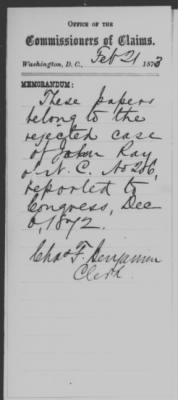 OFFICE OF THE
Commissioners of Claims.
Washington, D. C., Feb 21 1873
MEMORANDUM:
These papers
belong to the
rejected case
of John Ray
of N. C. No 206,
reported to
Congress, Dec
6, 1872.
Chas F. Benjamin
Clerk